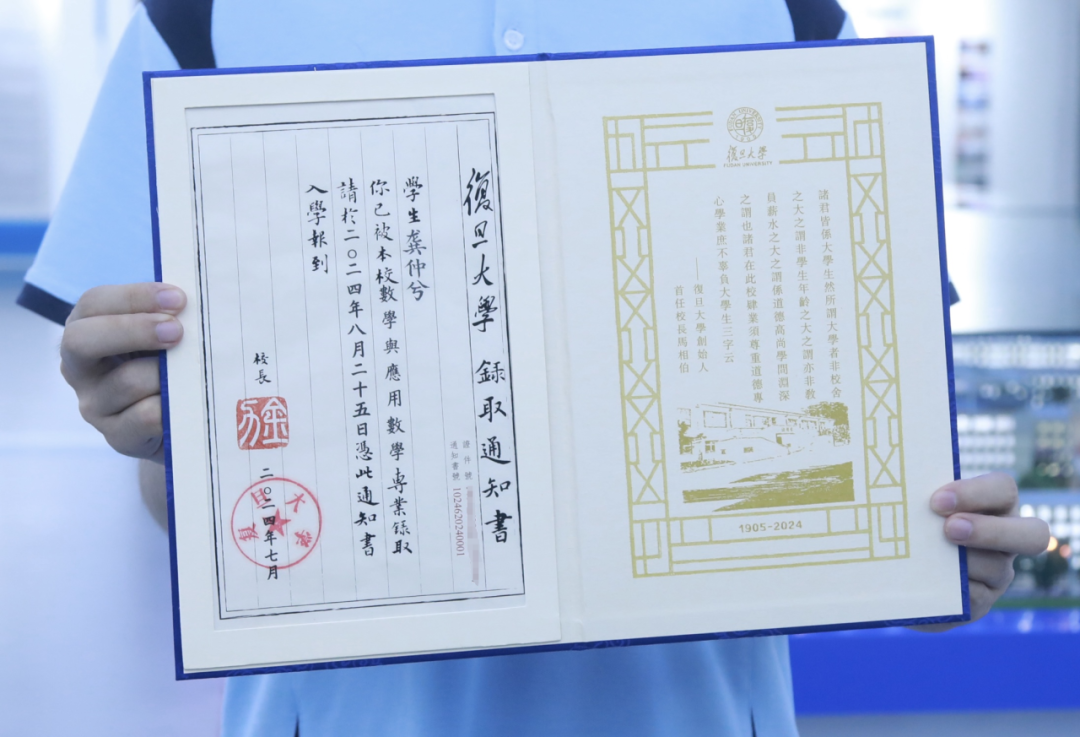 復旦大學 録取通知書
證件號
通知書號 1024620240001
學生龚仲兮
你已被本校數學與應用數學專業録取
請於二〇二四年八月二十五日憑此通知書
入學報到
校長
金力
二〇二四年七月
復旦大学
復旦大学
FUDAN UNIVERSITY
諸君皆係大學生然所謂大學者非校舍
之大之謂非學生年齡之大之謂亦非敎
員薪水之大之謂係道德高尚學問淵深
之謂也諸君在此校肄業須尊重道德專
心學業庶不辜負大學生三字云
——復旦大學創始人
首任校長馬相伯
1905-2024